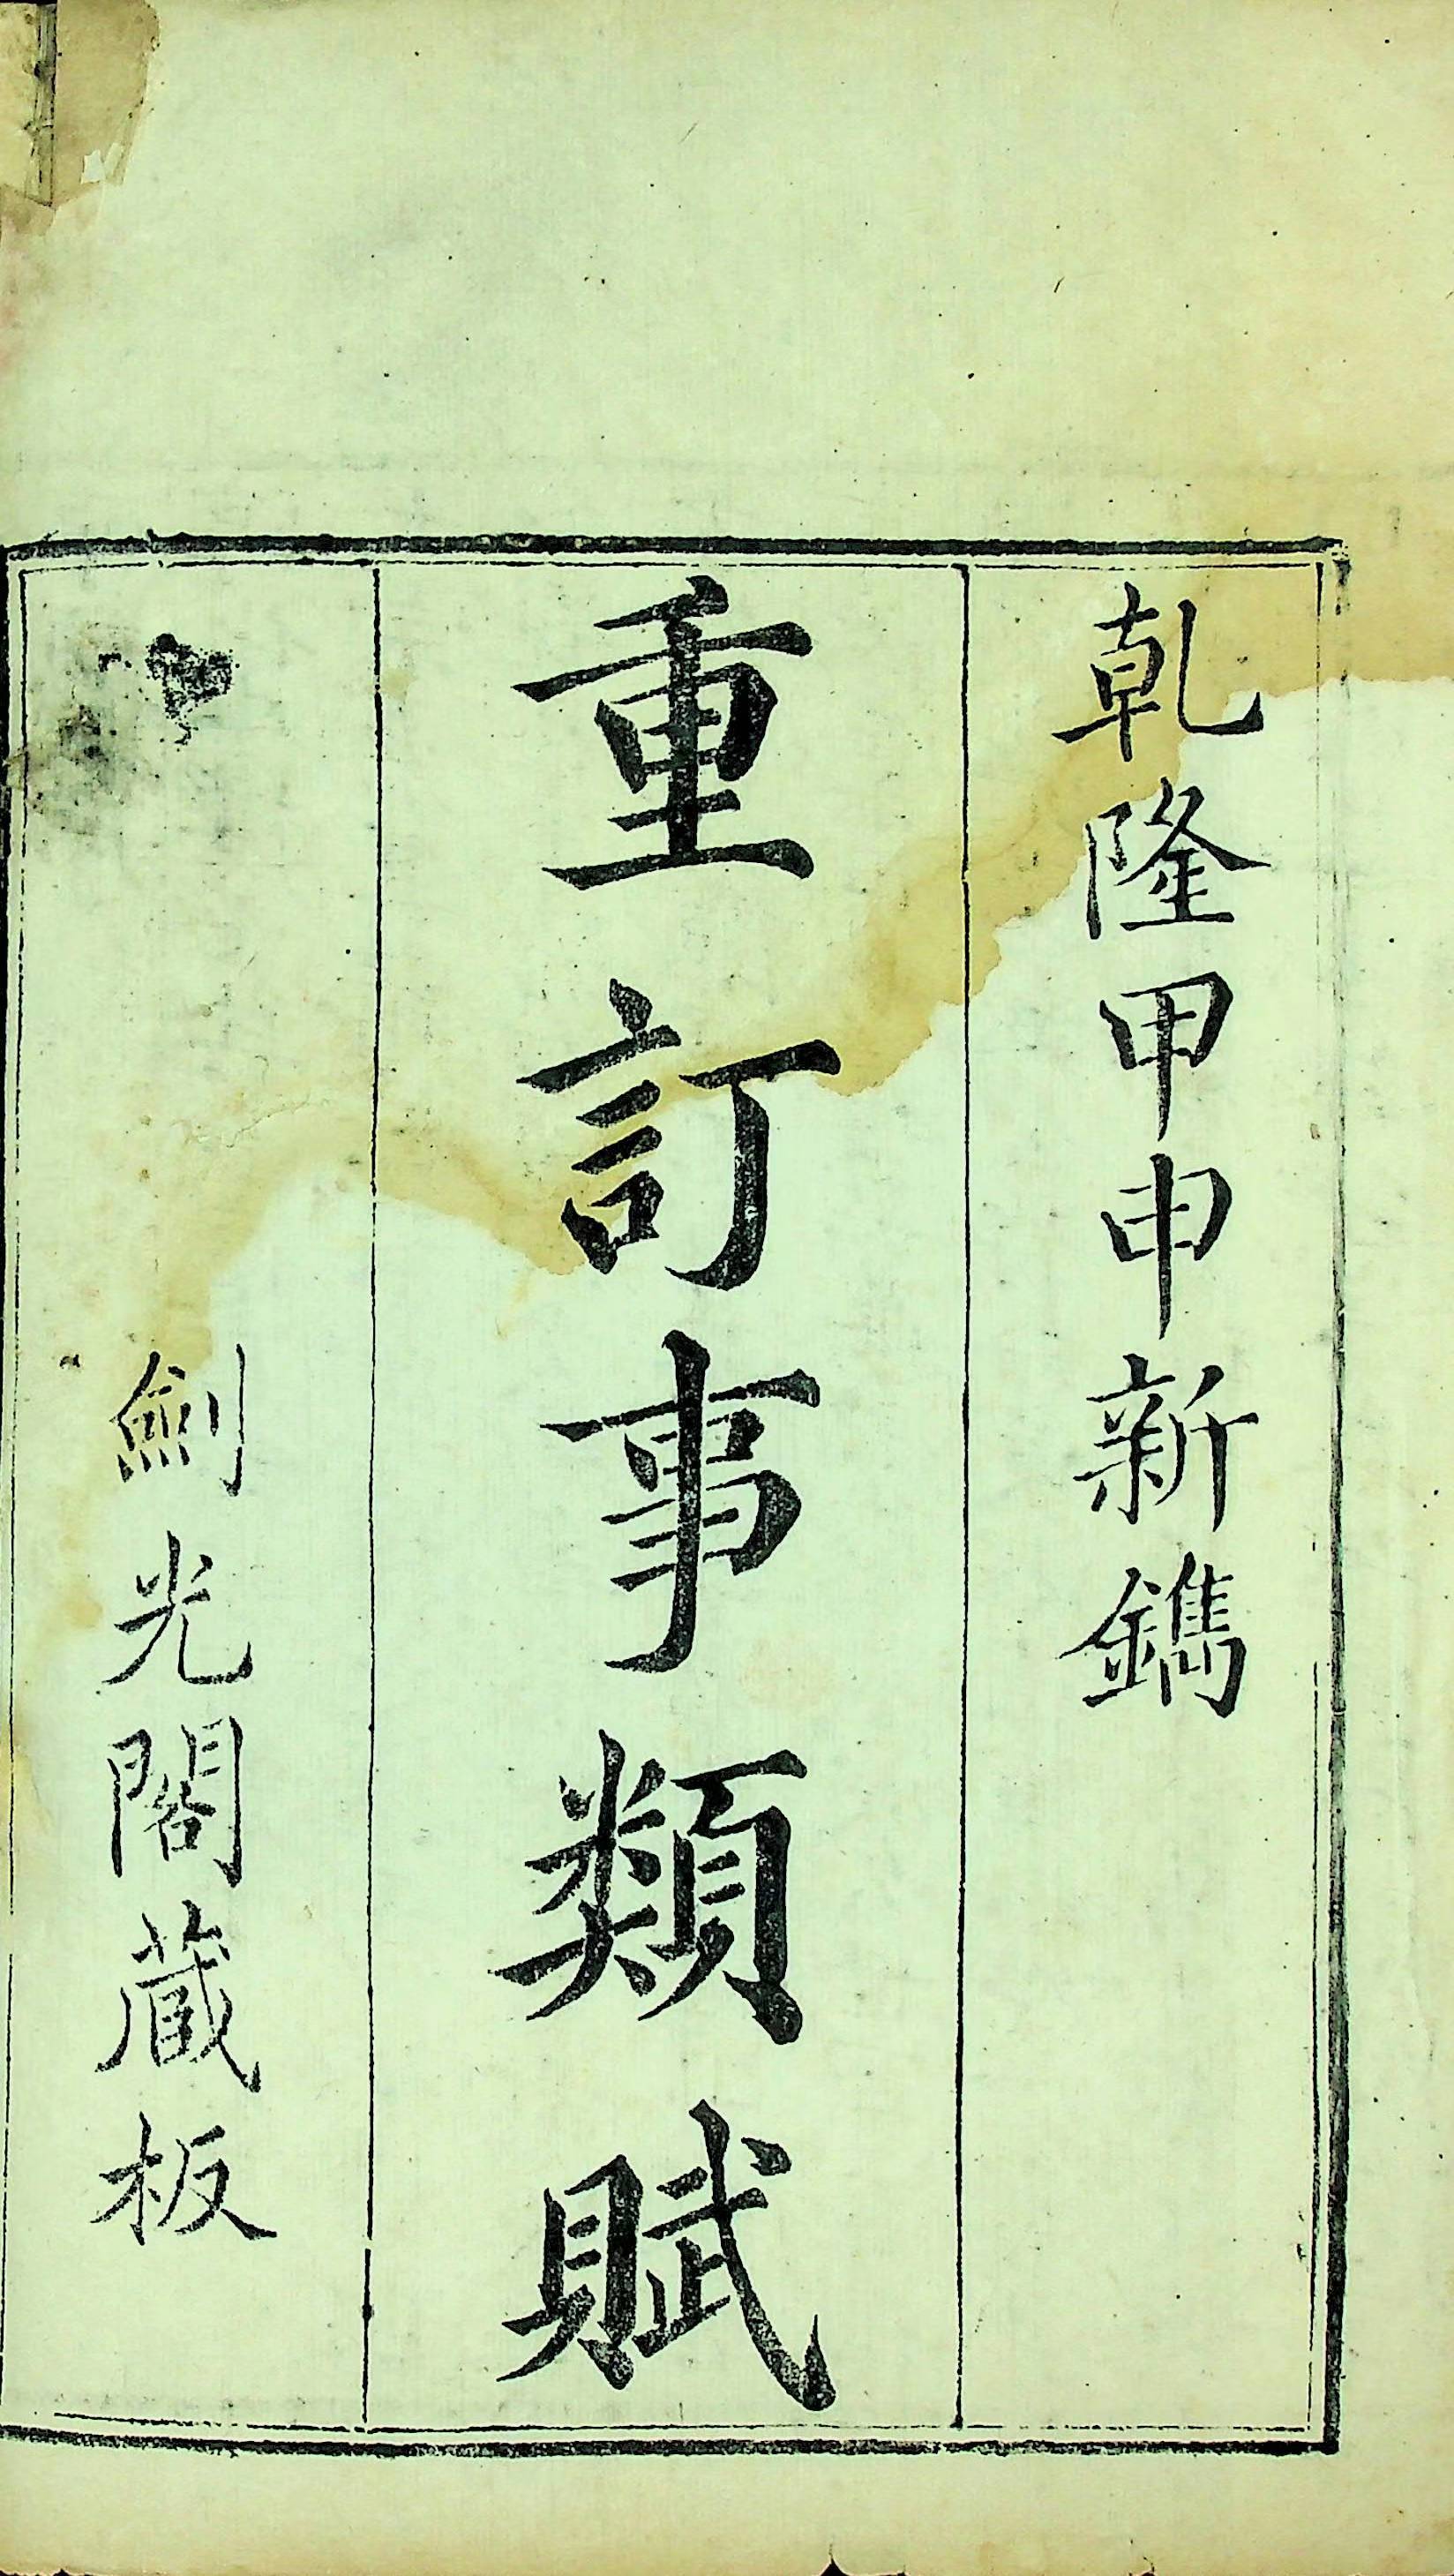 乾隆甲申新鐫
重訂事類賦
劍光閣藏板